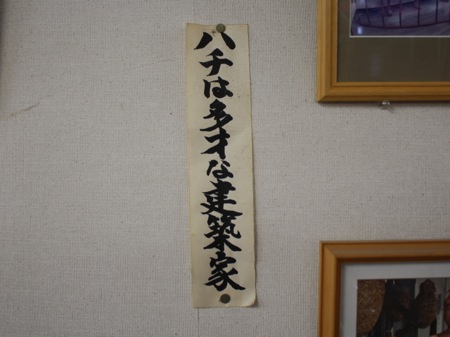 ハチは多才な建築家